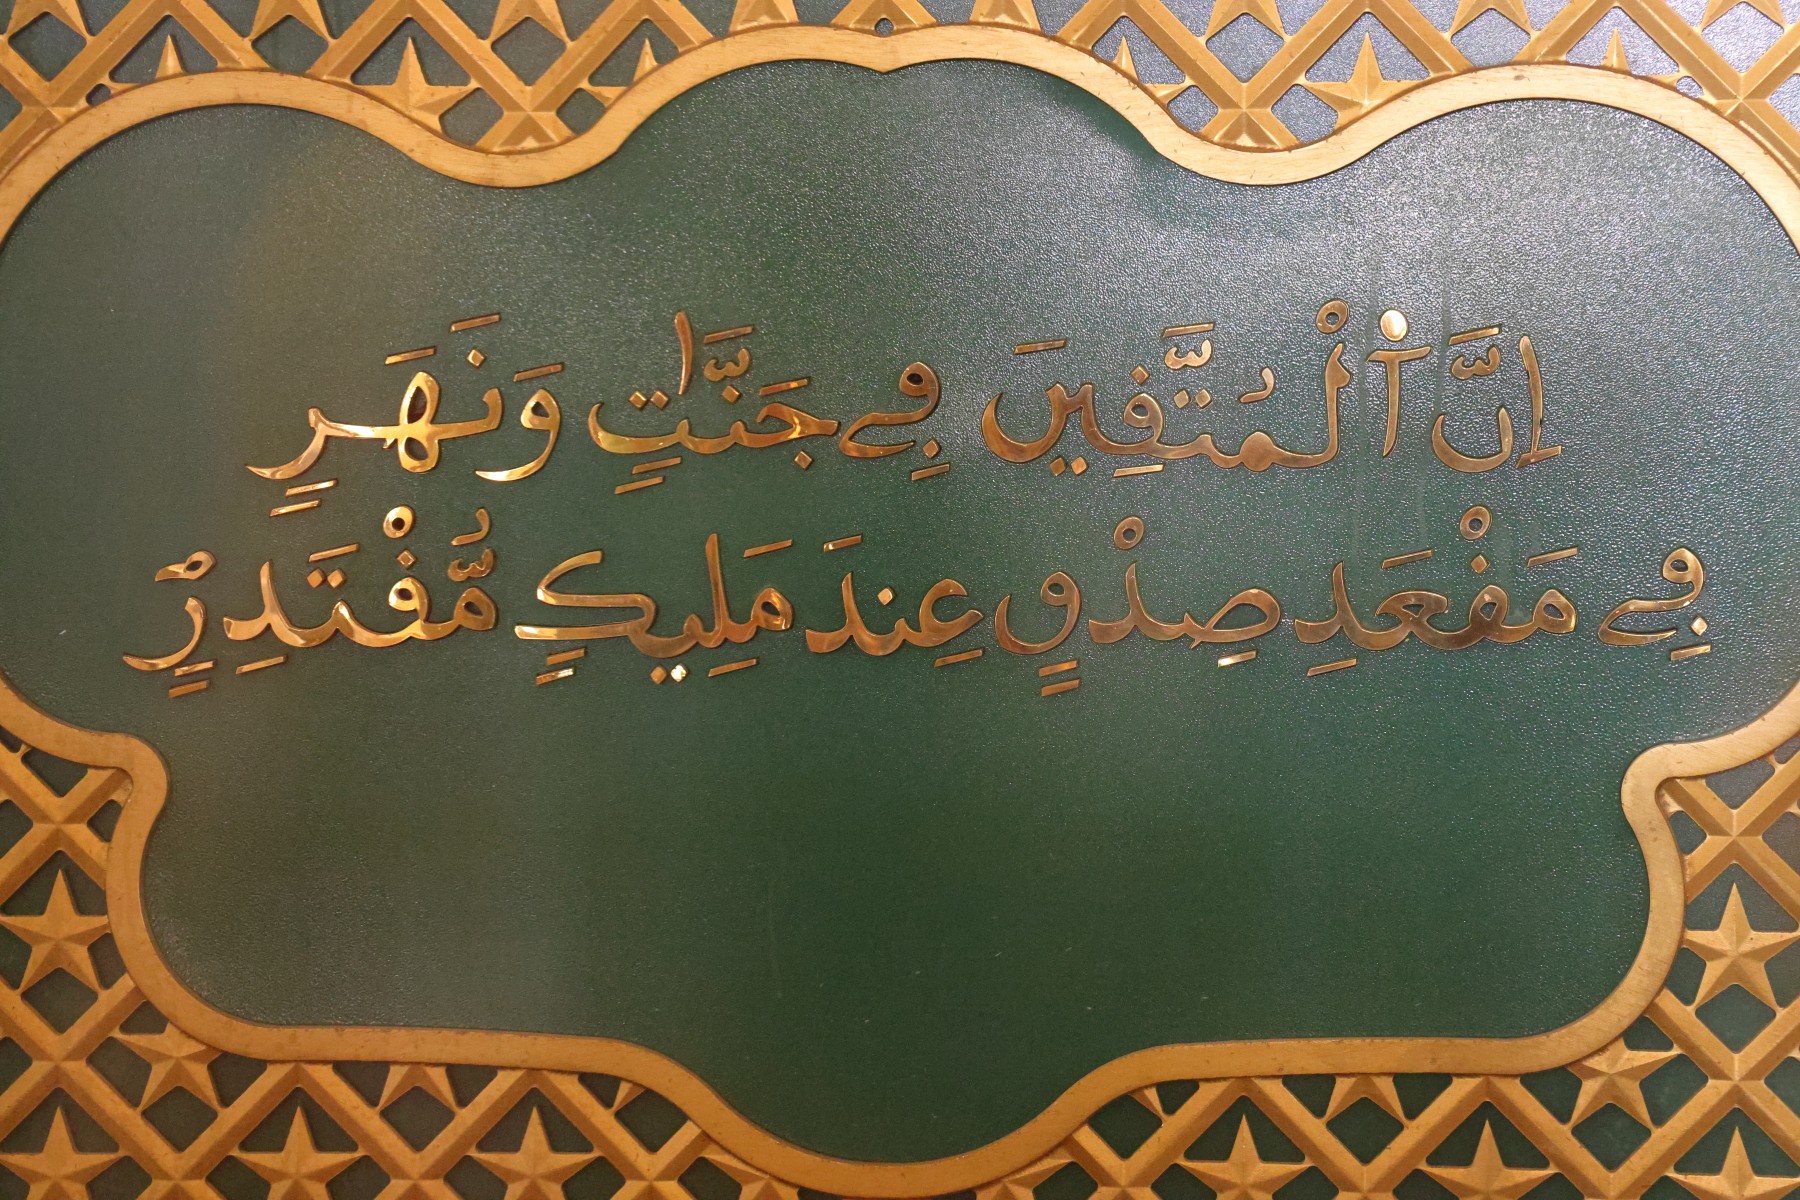 إِنَّ ٱلْمُتَّقِينَ فِے جَنَّٰتٍ وَنَهَرٍ
فِے مَقْعَدِ صِدْقٍ عِندَ مَلِيكٍ مُّقْتَدِرٍۢ